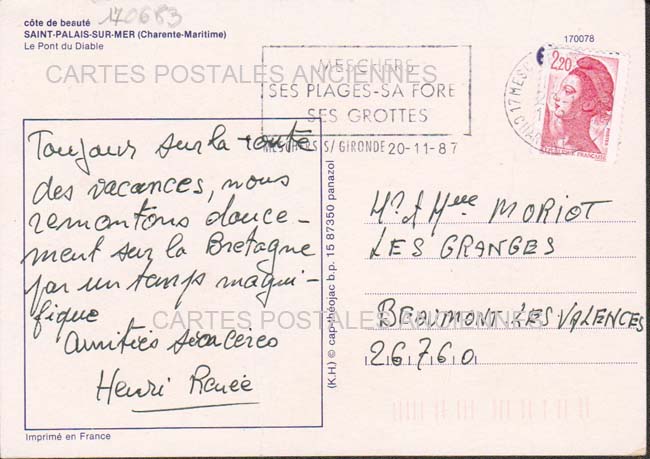 170683
côte de beauté
SAINT-PALAIS-SUR-MER (Charente-Maritime)
Le Pont du Diable
170078
CARTES POSTALES ANCIENNES
MESCHERS
SES PLAGES-SA FORE
SES GROTTES
MESCHERS S/ GIRONDE 20-11-87
17 MESC
CHAR
2,20
POSTES
REPUBLIQUE FRANÇAISE
Toujour sur la route
des vacances, nous
remontons douce-
ment sur la Bretagne
par un temps magni-
fique
Amitiés sincères
Henri Renée
Mr et Mme MORIOT
LES GRANGES
BEAUMONT LES VALENCES
26760
CARTES POSTALES ANCIENNES
(K.H) © cap-théojac b.p. 15 87350 panazol
Imprimé en France